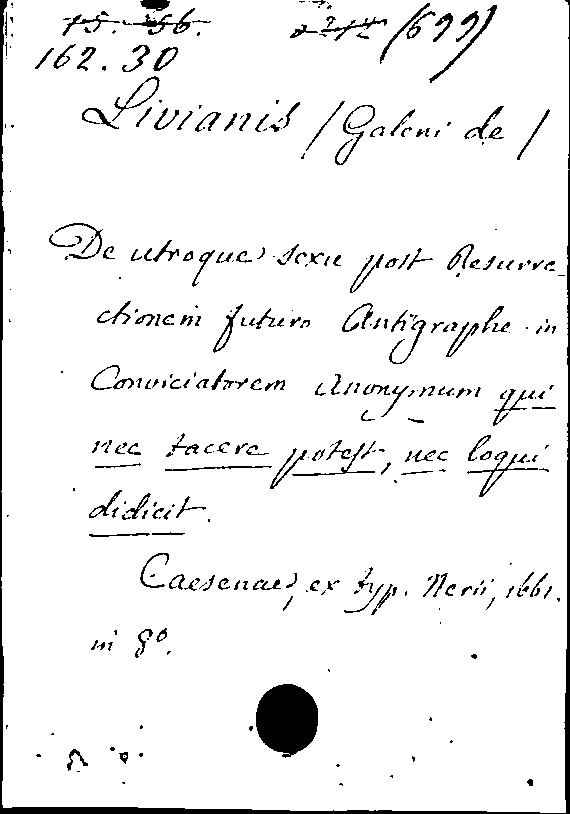 15. 56. (699)
162.30
Livianis / Galeni de /
De utroque sexu post Resurre-
ctionem futuro Antigraphe in
Conviciatorem Anonymum qui
nec tacere potest, nec loqui
didicit.
Caesenae, ex typ. Nerii, 1661.
in 8°.